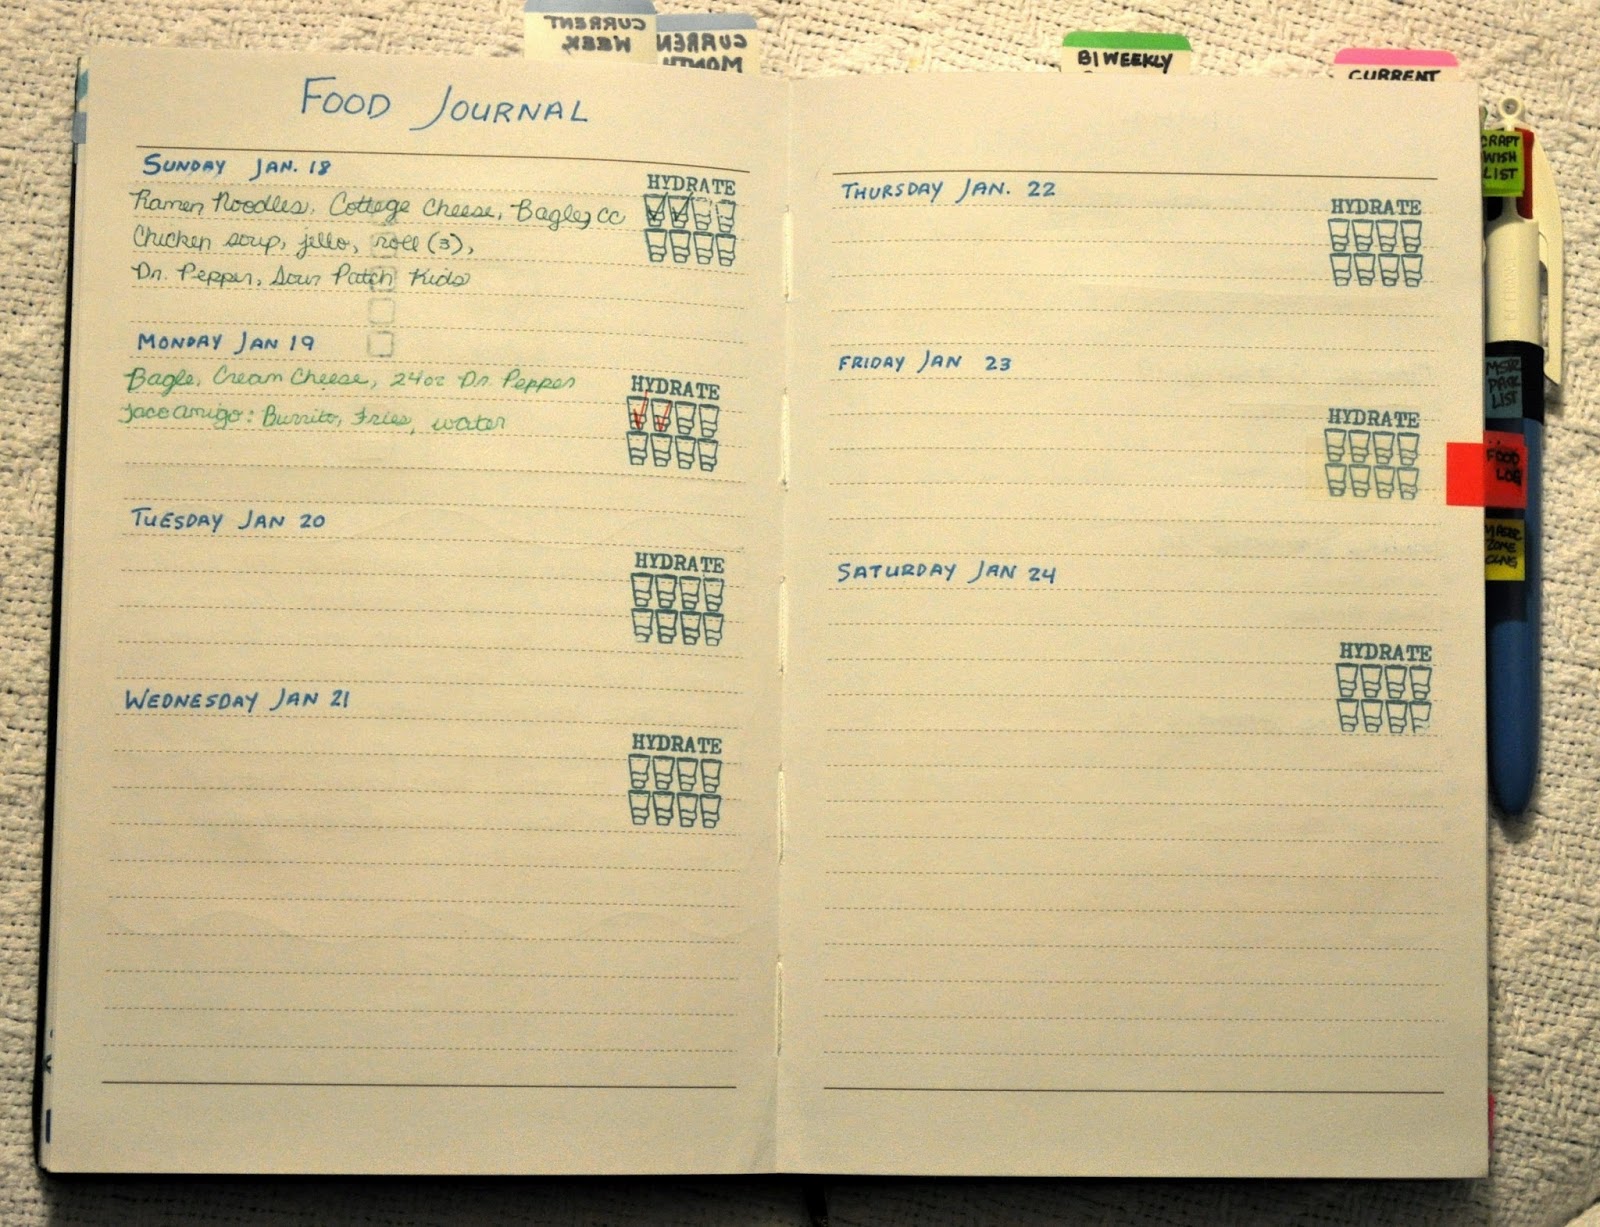 CURRENT
WEEK
CURREN
MONTH
BI WEEKLY
CURRENT
FOOD JOURNAL
SUNDAY JAN. 18
HYDRATE
Ramen Noodles, Cottege Cheese, Bagle, CC
Chicken soup, jello, roll (3),
Dr. Pepper, Sour Patch Kids
MONDAY JAN 19
Bagle, Cream Cheese, 24oz Dr. Pepper
HYDRATE
Taco amigo: Burrito, Fries, water
TUESDAY JAN 20
HYDRATE
WEDNESDAY JAN 21
HYDRATE
THURSDAY JAN. 22
HYDRATE
FRIDAY JAN 23
HYDRATE
SATURDAY JAN 24
HYDRATE
CRAFT
WISH
LIST
MSTR
PACK
LIST
FOOD
LOG